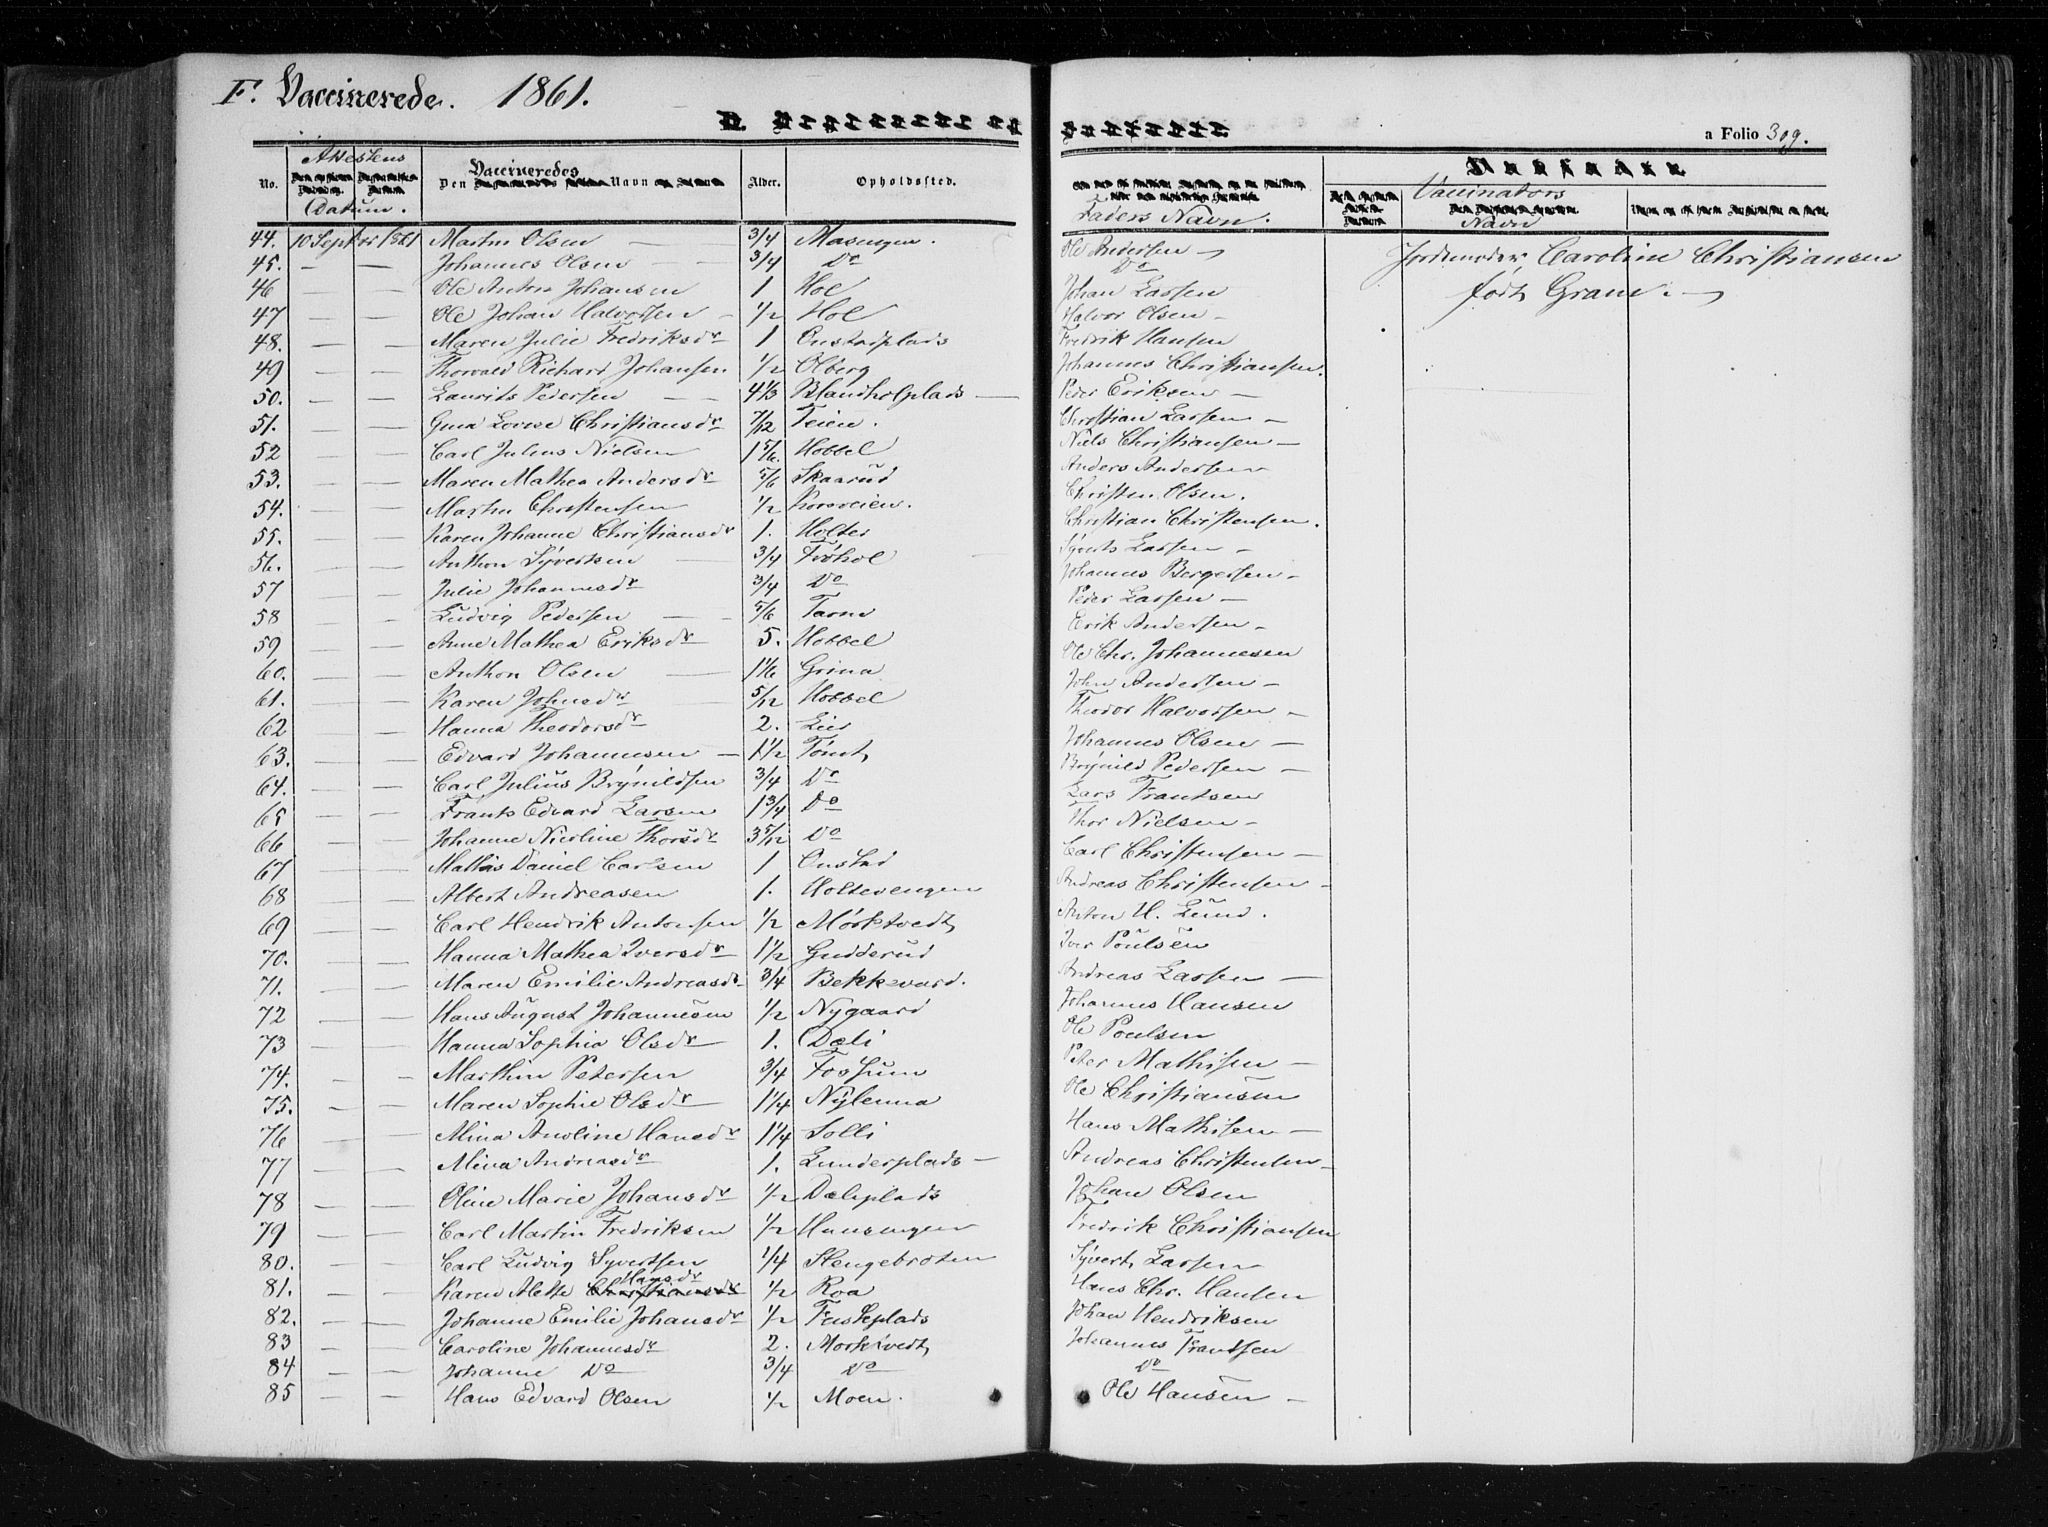 F. Vaccinerede. 1861.
a Folio 309.
No. Attestens Datum. Den Vaccineredes Navn Alder. Opholdssted. Faders Navn. Vaccinators Navn
44. 10 Septbr 1861 Martin Olsen — 3/4 Masengen. Ole Andersen — Jordemoder Caroline Christiansen
45. — — Johannes Olsen — 3/4 Do Do født Gran. —
46 — — Ole Anton Johansen 1 Hol Johan Larsen
47 — — Ole Johan Halvorsen — 1/2 Hol Halvor Olsen —
48. — — Maren Julie Fredriksdr 1 Onstadplads Fredrik Hansen
49 — — Thorvald Richard Johansen 1/2 Olberg Johannes Christiansen.
50. — — Laurits Pedersen — — 4 1/3 Blandholplads — Peder Eriksen —
51. — — Gina Lovise Christiansdr 7/12 Teien. Christian Larsen —
52 — — Carl Julius Nielsen 1 5/6. Hobbel Niels Christiansen —
53. — — Maren Mathea Andersdr 5/6 Skaarud Anders Andersen
54. — — Martin Christensen 1/2 Korsveien. Christen Olsen.
55. — — Karen Johanne Christiansdr 1. Holter Christian Christensen.
56. — — Anthon Syvertsen — 3/4 Frøhol Syverts Larsen —
57 — — Julie Johannesdr 3/4 Do Johannes Bergersen —
58 — — Ludvig Pedersen — — 5/6 Tarne Peder Larsen —
59 — — Anne Mathea Eriksdr 5. Hobbel Erik Andersen —
60. — — Anthon Olsen — 1 1/6 Grina Ole Chr. Johannesen
61. — — Karen Johnsdr 5/12 Hobbel John Andersen —
62 — — Hanna Theodorsdr 2. Lier Theodor Halvorsen —
63. — — Edvard Johannesen — 1 1/2 Tomt, Johannes Olsen —
64. — — Carl Julius Brynildsen 3/4 Do Brynild Pedersen —
65 — — Frants Edvard Larsen 1 3/4 Do Lars Frantsen
66 — — Johanne Nicoline Thorsdr 3 5/12 Do Thor Nielsen —
67 — — Mathias Daniel Carlsen 1 Onstad Carl Christensen —
68 — — Albert Andreasen 1. Holtevengen Andreas Christensen —
69 — — Carl Hendrik Antonsen 1/2 Mørktvedt, Anton H. Lund.
70. — — Hanna Mathea Iversdr 1 1/2 Gudderud Iver Poulsen
71. — — Maren Emilie Andreasdr 3/4 Bekkevard. Andreas Larsen —
72 — — Hans August Johannesen 1/2 Nygaard Johannes Hansen
73 — — Hanna Sophia Olsdr — 1. Dæli Ole Poulsen
74. — — Marthin Petersen 3/4 Fossum Peter Mathisen —
75. — — Maren Sophie Olsdr 1 1/4 Nylenna Ole Christiansen
76 — — Mina Anoline Hansdr 1 1/4 Solli Hans Mathisen —
77 — — Mina Andreasdr 1. Lunderplads — Andreas Christensen —
78 — — Oline Marie Johansdr 1/2 Dæliplads Johan Olsen
79 — — Carl Martin Fredriksen 1/2 Hunsengen Fredrik Christiansen
80. — — Carl Ludvig Syvertsen 1/4 Stengebroten Syvert, Larsen
81. — — Karen Mette Christiansdr Hansdr 1/2 Roa Hans Chr. Hansen
82. — — Johanne Emilie Johansdr 1/2 Fuskeplads Johan Hendriksen
83 — — Caroline Johannesdr 2. Morktvedt, Johannes Frantsen
84 — — Johanne Do 3/4 Do Do
85 — — Hans Edvard Olsen 1/2 Moen. Ole Hansen —